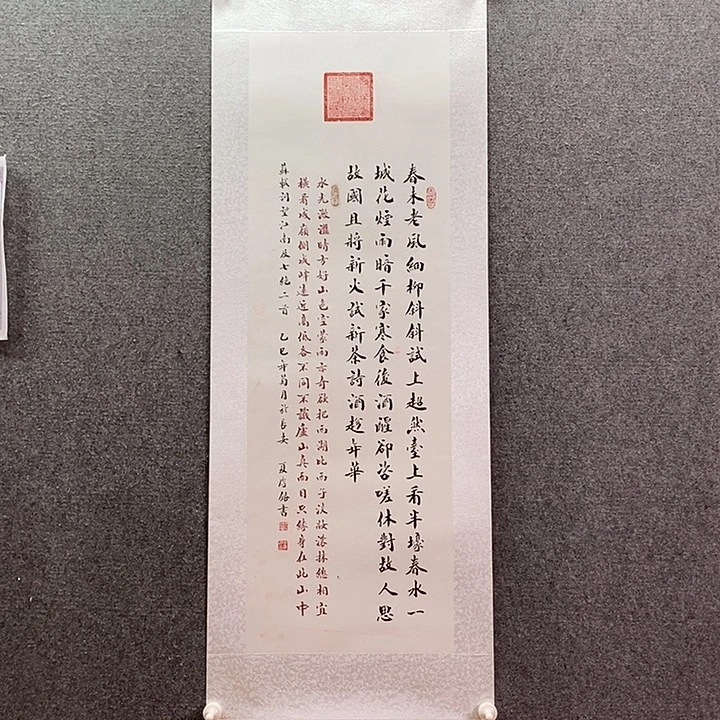 春未老風細柳斜斜試上超然臺上看半壕春水一
城花煙雨暗千家寒食後酒醒卻咨嗟休對故人思
故國且將新火試新茶詩酒趁年華
水光瀲灩晴方好山色空蒙雨亦奇欲把西湖比西子淡妝濃抹總相宜
橫看成嶺側成峰遠近高低各不同不識廬山真面目只緣身在此山中
蘇軾詞望江南及七絕二首 乙巳年菊月於長安 夏 書